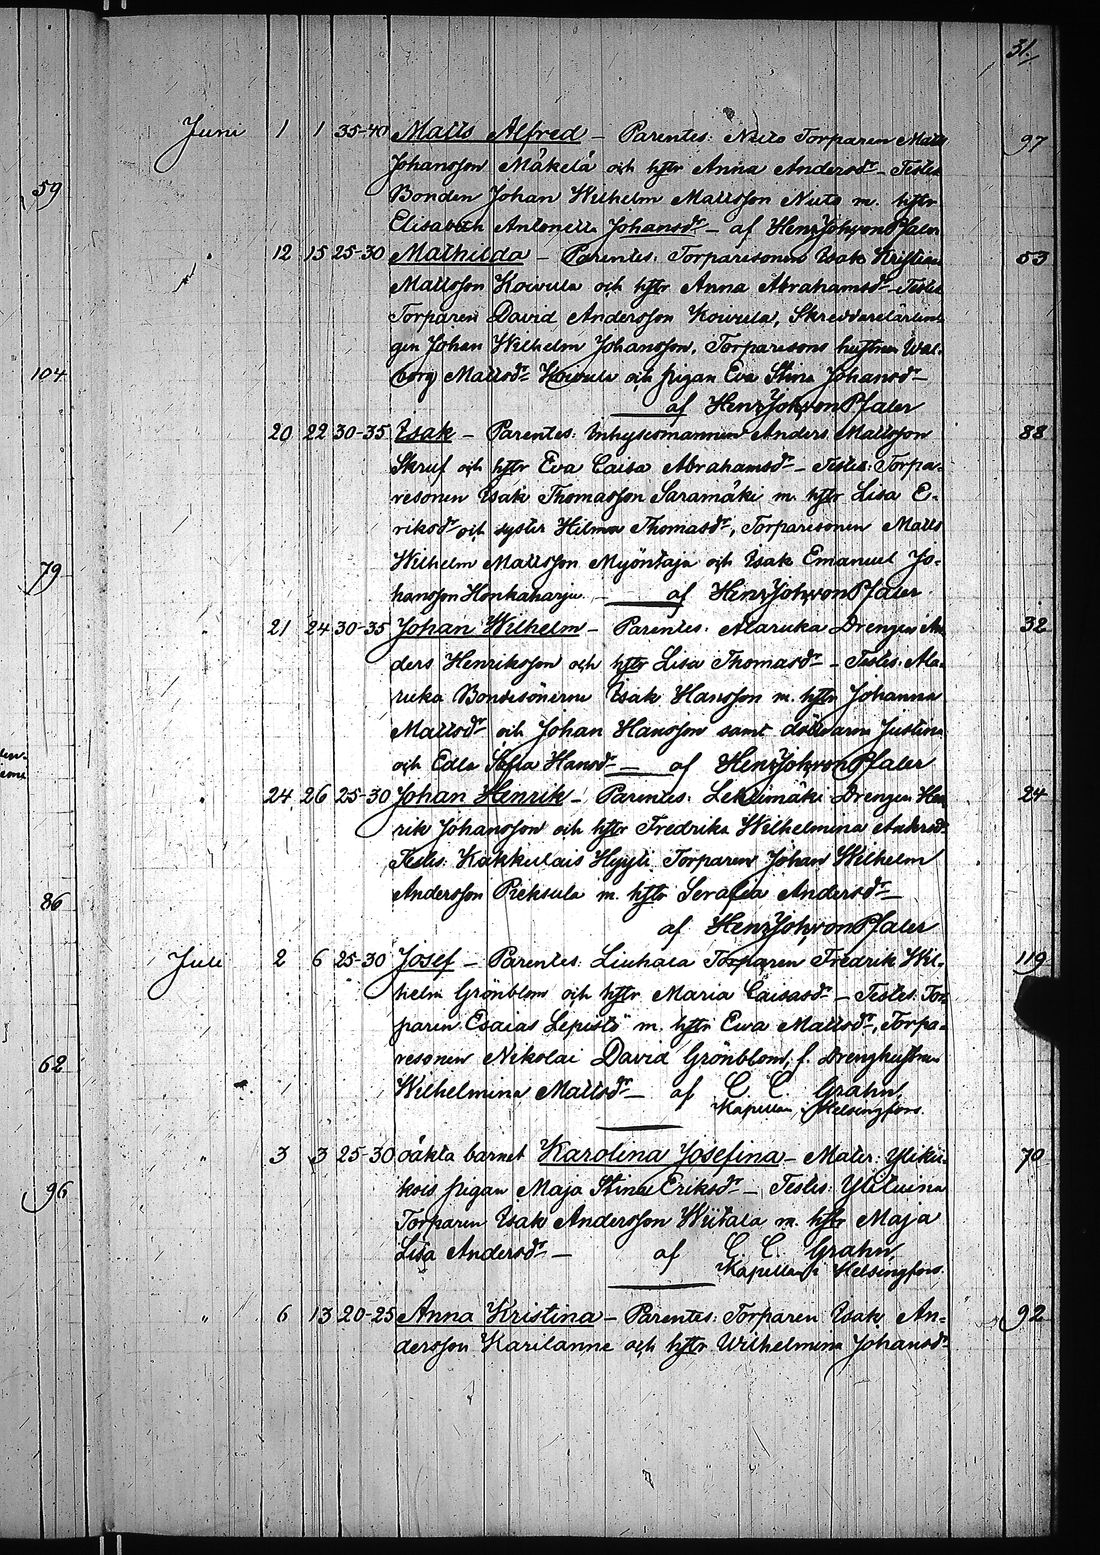 31.
Juni 1 1 35-40 Matts Alfred – Parentes: Niuto Torparen Matts 97
Johansson Mäkelä och hstr Anna Andersdr – Testes
Bonden Johan Wilhelm Mattsson Niuto m. hstr
Elisabeth Antonetta Johansdr – af Henr Joh von Pfaler
" 12 15 25-30 Mathilda – Parentes: Torparesonen Isak Kristian 53
Mattsson Koivula och hstr Anna Abrahamsdr – Testes
Torparen David Andersson Koivula, Skreddarelärlin-
gen Johan Wilhelm Johansson, Torparesons hustrun Wal-
borg Mattsdr Koivula och pigan Eva Stina Johansdr –
af Henr Joh von Pfaler
" 20 22 30-35 Isak – Parentes. Inhysesmannen Anders Mattsson 88
Skruf och hstr Eva Caisa Abrahamsdr – Testes: Torpa-
resonen Isak Thomasson Saramäki m. hstr Lisa E-
riksdr och syster Hilma Thomasdr, Torparesonen Matts
Wilhelm Mattsson Myöntäjä och Isak Emanuel Jo-
hansson Honkaharju – af Henr Joh von Pfaler.
" 21 24 30-35 Johan Wilhelm – Parentes. Alaruka Drengen An 32
ders Henriksson och hstr Lisa Thomasdr – Testes: Ala-
ruka Bondesönerne Isak Hansson m. hstr Johanna
Mattsdr och Johan Hansson samt döttrarna Justina
och Edla Sofia Hansdr – af Henr Joh von Pfaler
" 24 26 25-30 Johan Henrik – Parentes: Lehtimäki Drengen Hen 24
rik Johansson och hstr Fredrika Wilhelmina Andersdr
Testes. Kakkulais Hyyti Torparen Johan Wilhelm
Andersson Pieksula m. hstr Serafia Andersdr –
af Henr Joh von Pfaler
Juli 2 6 25-30 Josef – Parentes: Liuhala Torparen Fredrik Wil- 119
helm Grönblom och hstr Maria Caisasdr – Testes: Tor-
paren Esaias Lepistö m. hstr Ewa Mattsdr, Torpa-
resonen Nikolai David Grönblom, f. Drenghustrun
Wilhelmina Mattsdr – af C. C. Grahn,
Kapellan i Helsingfors.
" 3 3 25-30 oäkta barnet Karolina Josefina – Mater: Ylikii- 70
kois pigan Maja Stina Eriksdr – Testes: Ylituina
Torparen Isak Andersson Wiitala m. hstr Maja
Lisa Andersdr – af C. C. Grahn,
Kapellan i Helsingfors.
" 6 13 20-25 Anna Kristina – Parentes: Torparen Isak An- 92
dersson Karilanne och hstr Wilhelmina Johansdr
59
104
79
86
62
96